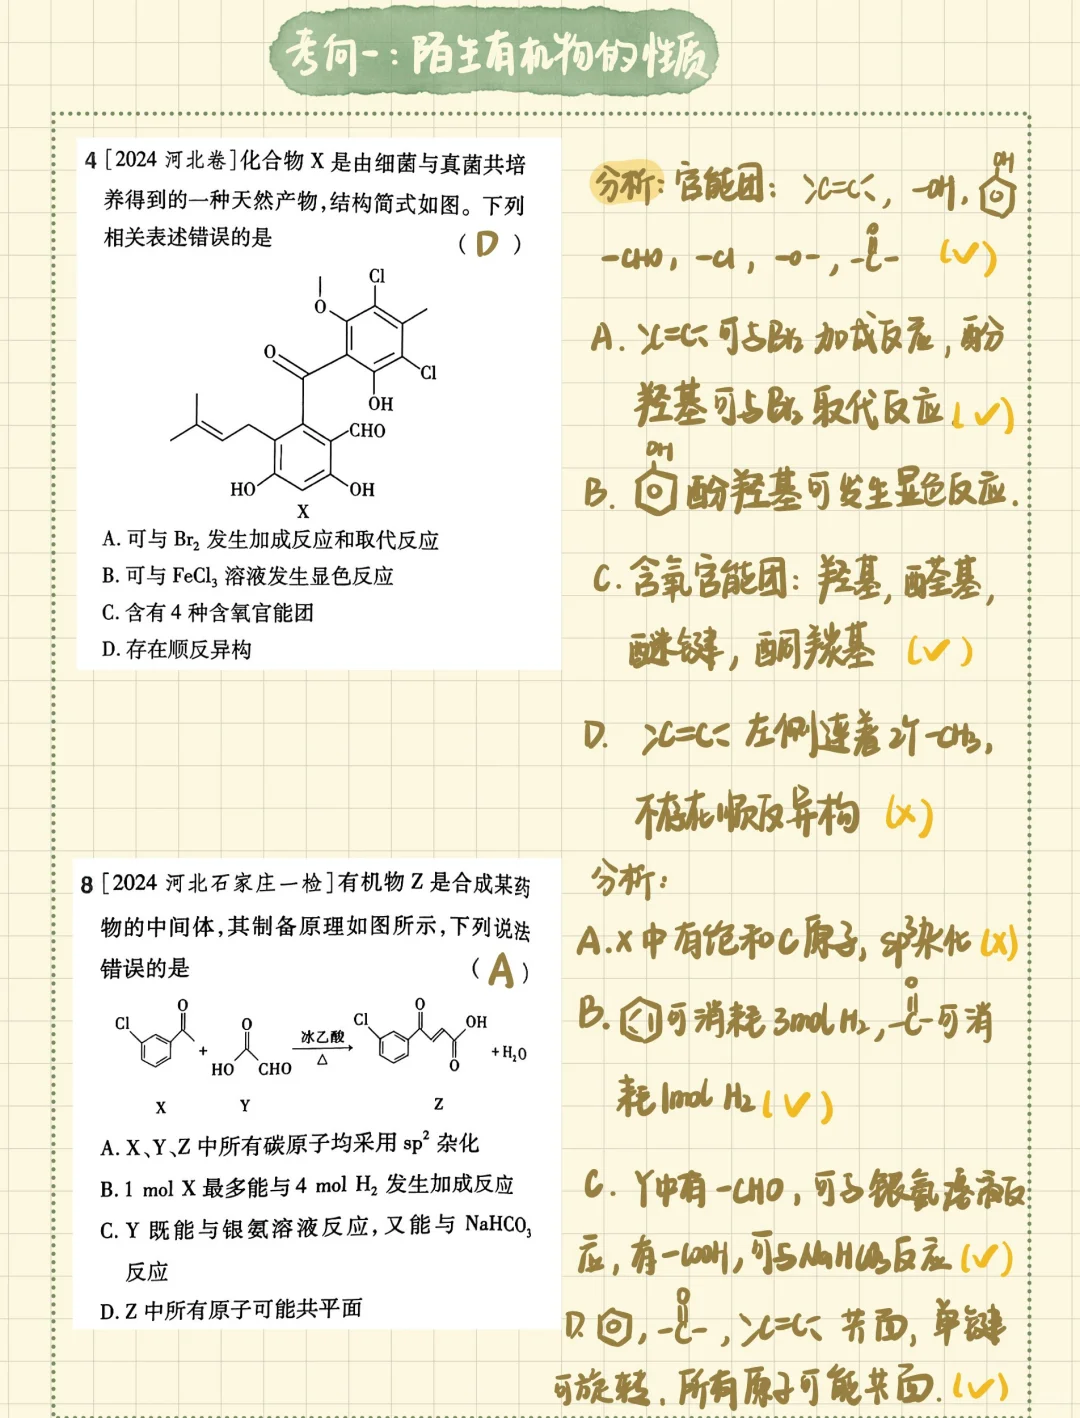 考向一：陌生有机物的性质
4 [2024 河北卷]化合物 X 是由细菌与真菌共培
养得到的一种天然产物,结构简式如图。下列
相关表述错误的是 （ D ）
Cl
O
O
Cl
OH
CHO
HO
OH
X
A. 可与 Br₂ 发生加成反应和取代反应
B. 可与 FeCl₃ 溶液发生显色反应
C. 含有 4 种含氧官能团
D. 存在顺反异构
分析：官能团：>C=C<，-OH，
OH
-CHO，-Cl，-O-，-C- (✓)
O
A. >C=C< 可与Br₂ 加成反应，酚
羟基可与Br₂ 取代反应 (✓)
OH
B. 酚羟基可发生显色反应.
C. 含氧官能团：羟基，醛基，
醚键，酮羰基 (✓)
D. >C=C< 左侧连着2个-CH₃，
不存在顺反异构 (×)
8 [2024 河北石家庄一检]有机物 Z 是合成某药
物的中间体,其制备原理如图所示,下列说法
错误的是 （ A ）
Cl
O
+
O
HO
CHO
冰乙酸
△
Cl
O
OH
O
+H₂O
X
Y
Z
A. X、Y、Z 中所有碳原子均采用 sp² 杂化
B. 1 mol X 最多能与 4 mol H₂ 发生加成反应
C. Y 既能与银氨溶液反应,又能与 NaHCO₃
反应
D. Z 中所有原子可能共平面
分析：
A. X 中有饱和C原子，sp³杂化 (×)
O
B. 可消耗 3mol H₂，-C-可消
耗1mol H₂ (✓)
C. Y中有-CHO，可与银氨溶液反
应，有-COOH，可与NaHCO₃反应 (✓)
O
D. ，-C-，>C=C< 共面，单键
可旋转，所有原子可能共面. (✓)